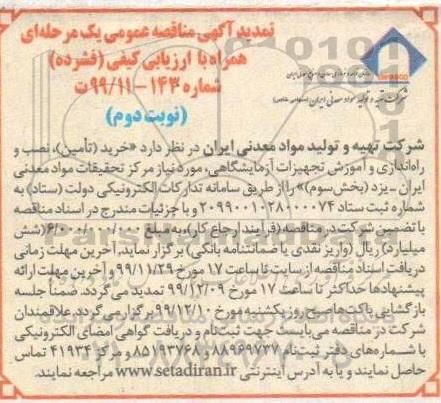 تمدید آگهی مناقصه عمومی یک مرحله‌ای
همراه با ارزیابی کیفی (فشرده)
شماره ۱۴۳-۹۹/۱۱ت
(نوبت دوم)
IMPASCO
شرکت تهیه و تولید مواد معدنی ایران (سهامی خاص)
شرکت تهیه و تولید مواد معدنی ایران در نظر دارد «خرید (تأمین)، نصب و
راه‌اندازی و آموزش تجهیزات آزمایشگاهی، مورد نیاز مرکز تحقیقات مواد معدنی
ایران - یزد (بخش سوم)» را از طریق سامانه تدارکات الکترونیکی دولت (ستاد) به
شماره ثبت ستاد ۲۰۹۹۰۰۱۰۲۸۰۰۰۰۷۴ و با جزئیات مندرج در اسناد مناقصه
با تضمین شرکت در مناقصه (فرآیند ارجاع کار)، به مبلغ ۶/۰۰۰/۰۰۰/۰۰۰ (شش
میلیارد) ریال (واریز نقدی یا ضمانتنامه بانکی) برگزار نماید. آخرین مهلت زمانی
دریافت اسناد مناقصه از سایت تا ساعت ۱۷ مورخ ۹۹/۱۱/۲۹ و آخرین مهلت ارائه
پیشنهادها حداکثر تا ساعت ۱۷ مورخ ۹۹/۱۲/۰۹ تمدید می‌گردد. ضمناً جلسه
بازگشایی پاکت‌ها صبح روز یکشنبه مورخ ۹۹/۱۲/۱۰ برگزار می‌گردد. علاقمندان
شرکت در مناقصه می‌بایست جهت ثبت‌نام و دریافت گواهی امضای الکترونیکی
با شماره‌های دفتر ثبت‌نام ۸۸۹۶۹۷۳۷ و ۸۵۱۹۳۷۶۸ و مرکز ۴۱۹۳۴ تماس
حاصل نمایند و یا به آدرس اینترنتی www.setadiran.ir مراجعه نمایند.